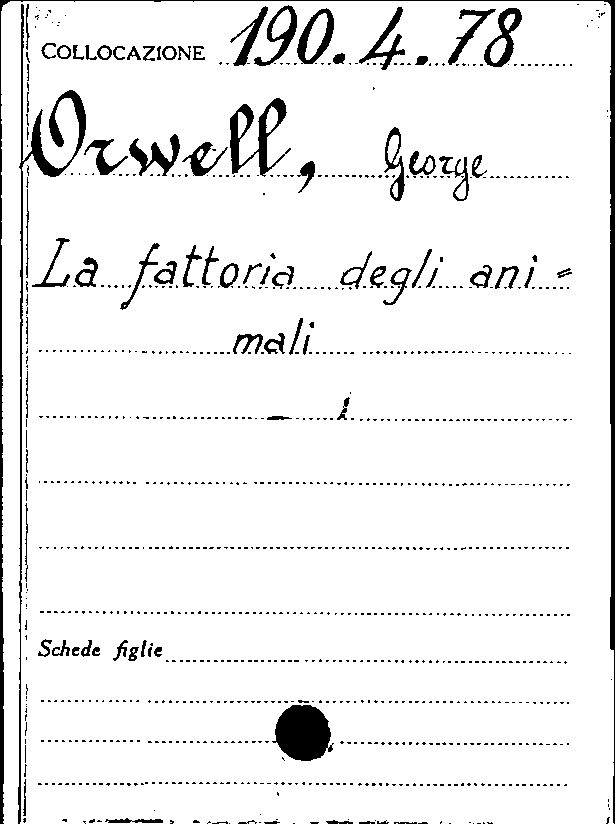 COLLOCAZIONE 190.4.78
Orwell, George
La fattoria degli ani=
mali
Schede figlie